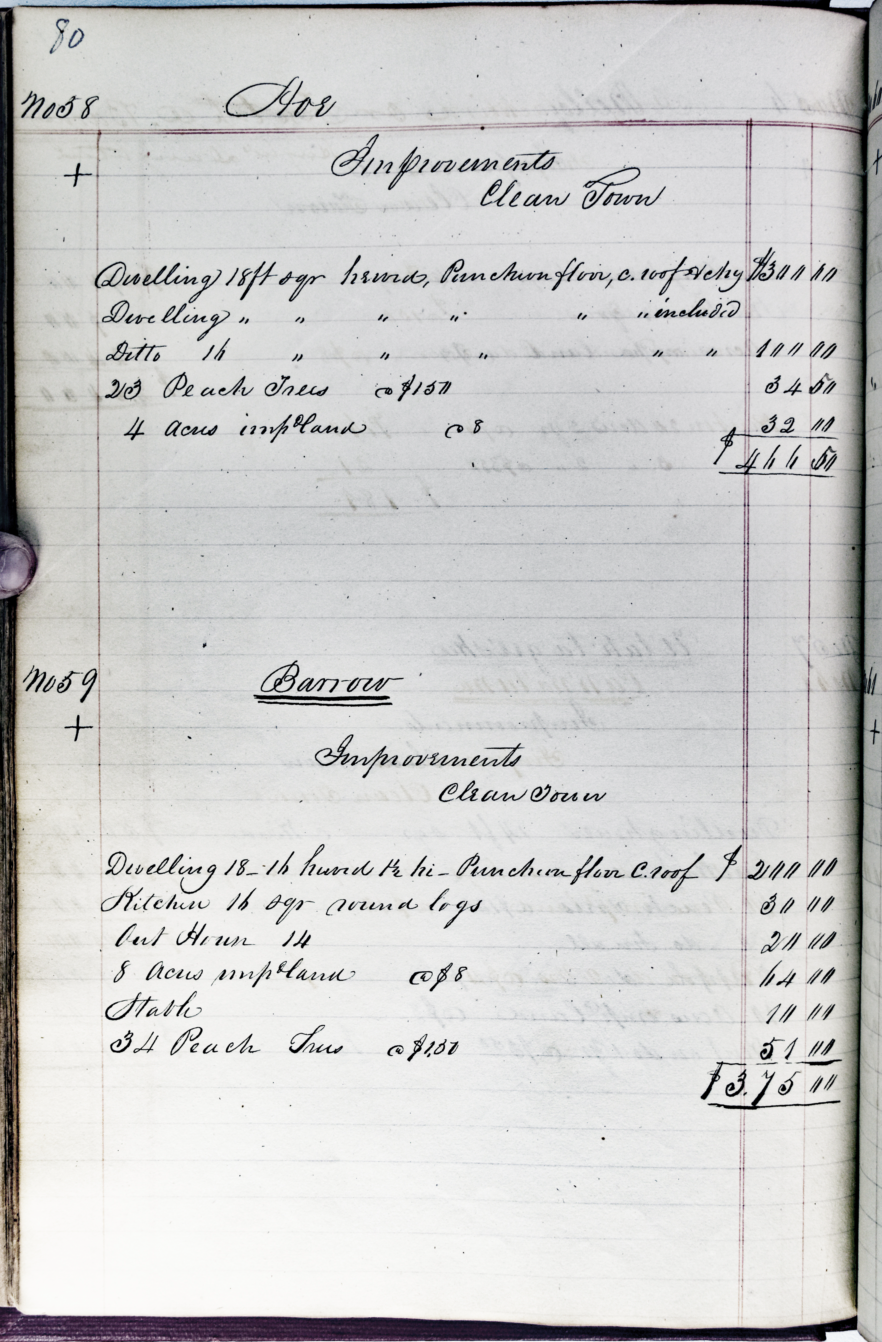 80
No 58 Hoe
+ Improvements
Clean Town
Dwelling 18ft sqr hewed, Puncheon floor, c. roof & chy $300 00
Dwelling " " " " " " included
Ditto 16 " " " " " 100 00
23 Peach Trees @ $150 34 50
4 acres impd land @ 8 32 00
$ 466 50
No 59 Barrow
+
Improvements
Clean Town
Dwelling 18-16 hewed 1½ hi- Puncheon floor C. roof $ 200 00
Kitchen 16 sqr round logs 30 00
Out House 14 20 00
8 Acres impd land @ $8 64 00
Stable 10 00
34 Peach Trees @ $1,50 51 00
$ 3.75 00